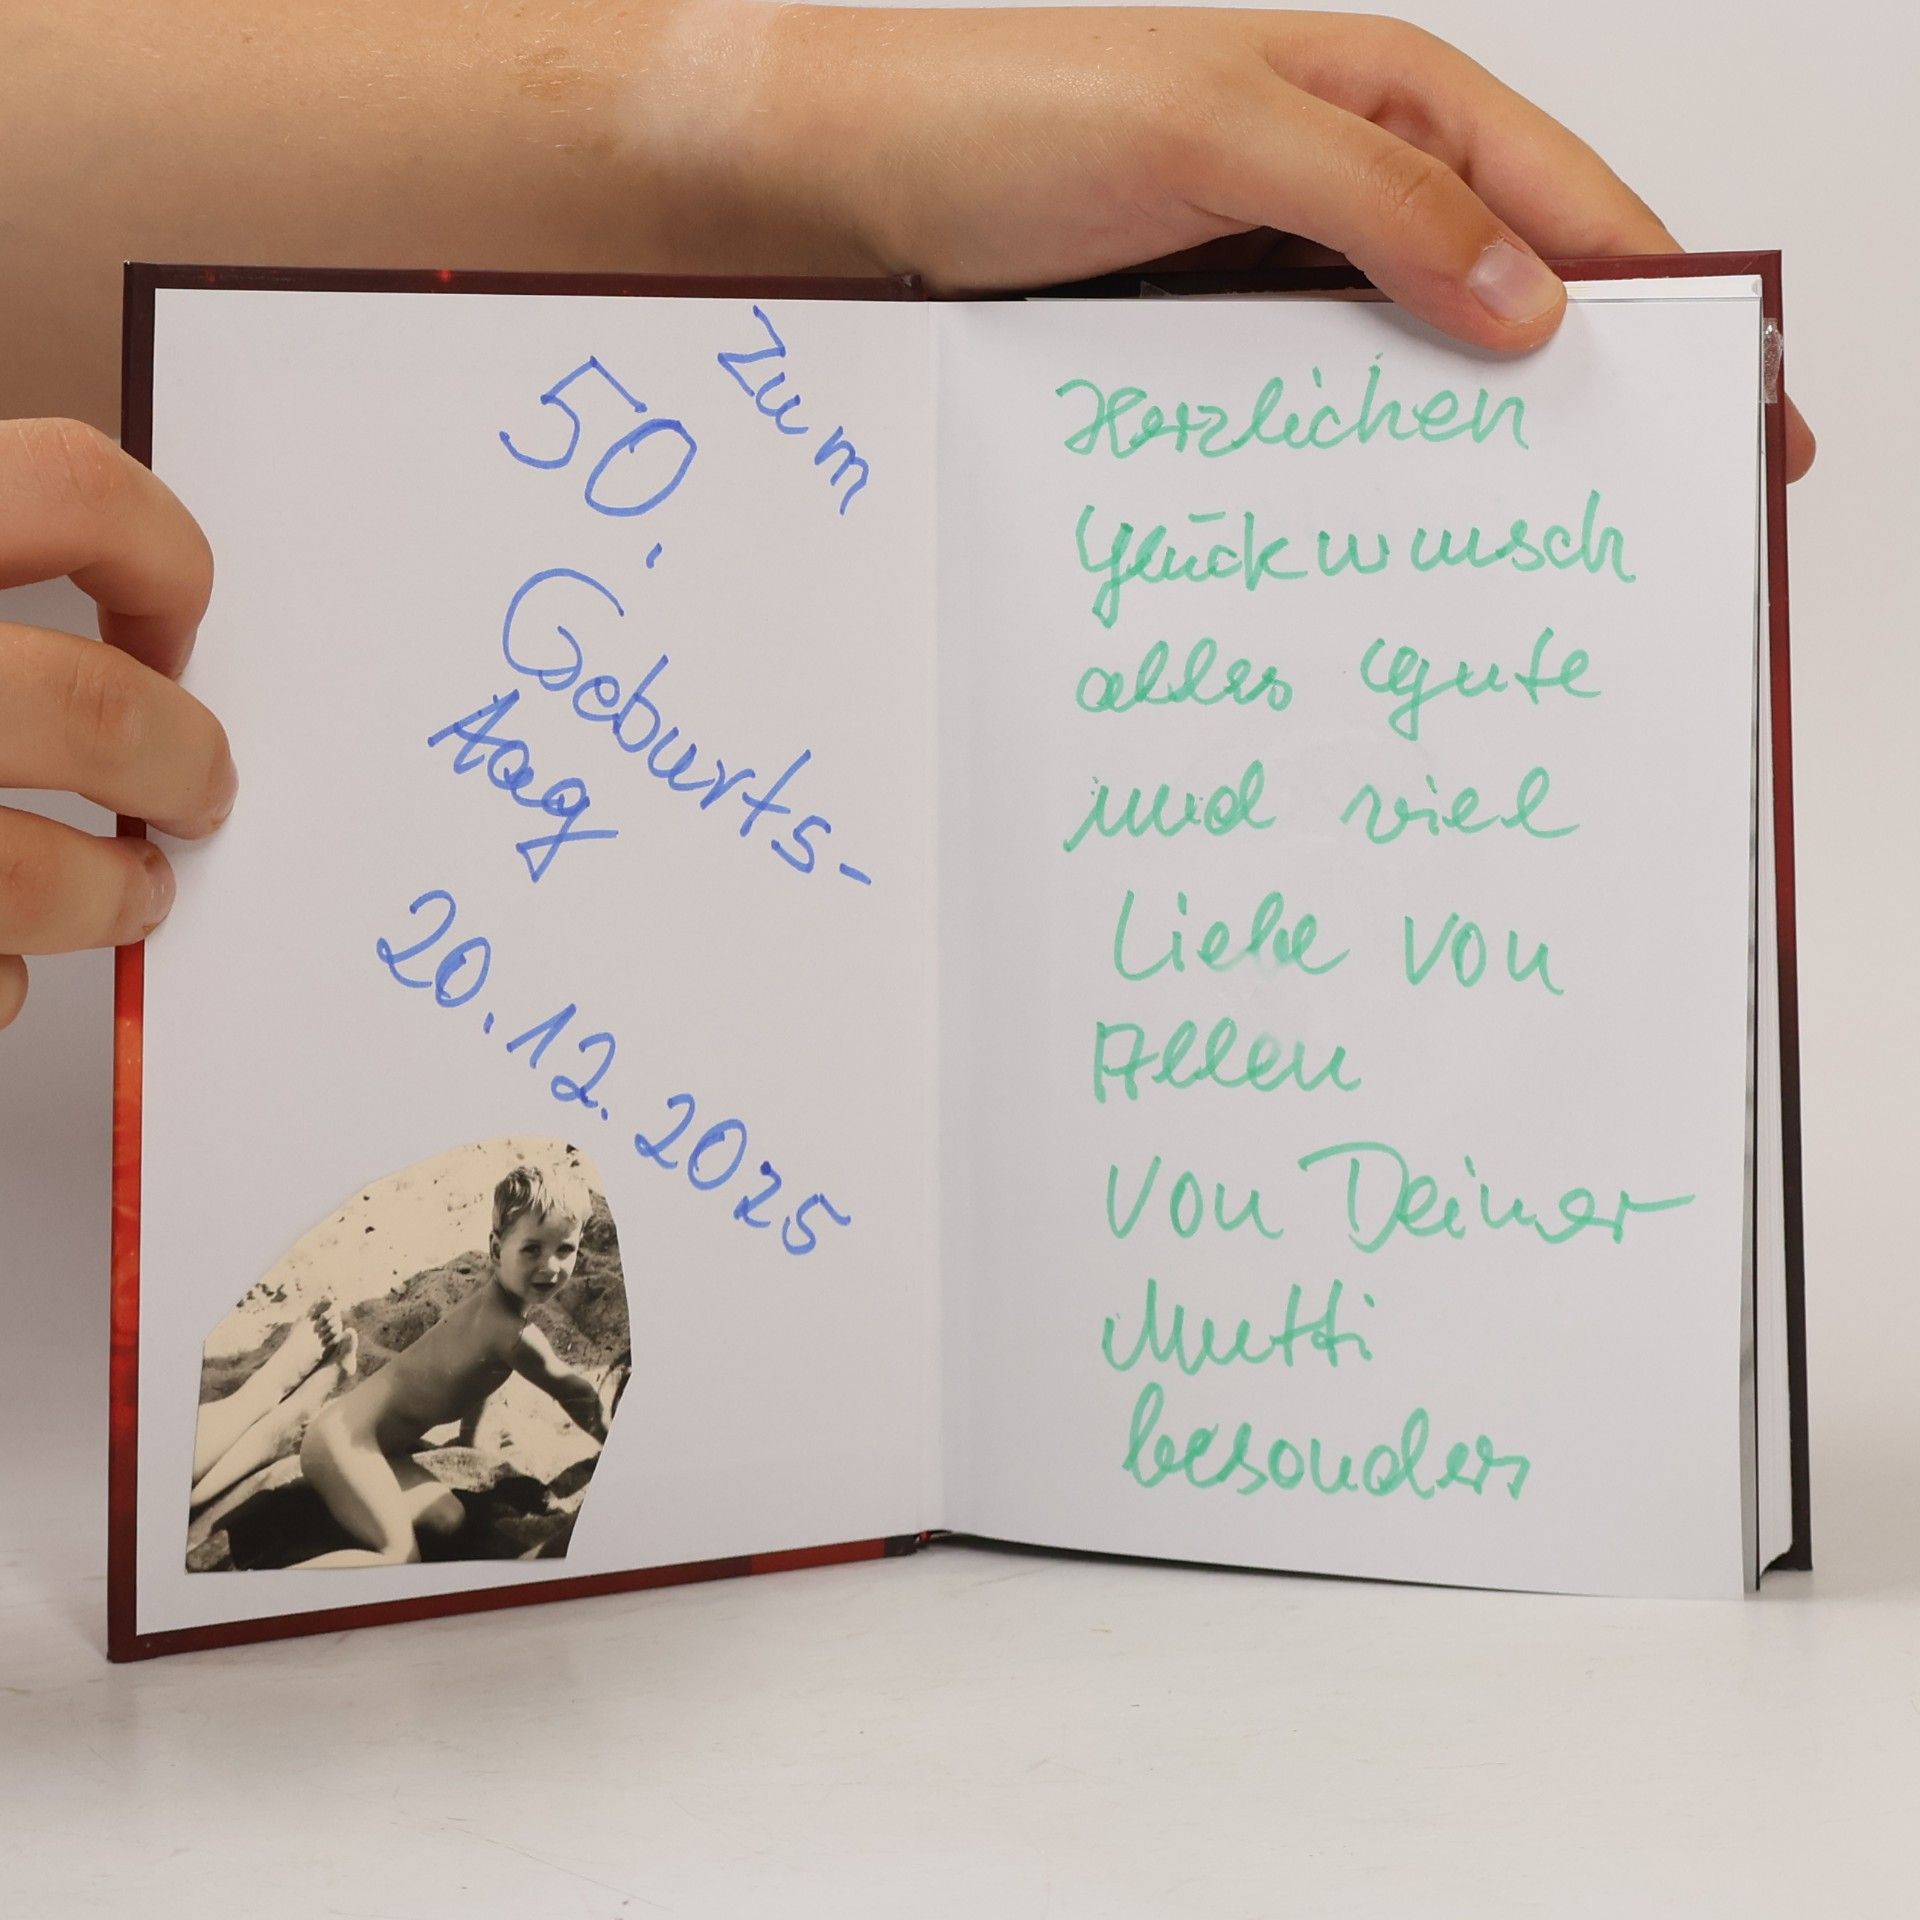 Zum
50.
Geburts-
tag
20.12.2025
Herzlichen
Glückwunsch
alles Gute
und viel
Liebe von
Allen
von Deiner
Mutti
besonders